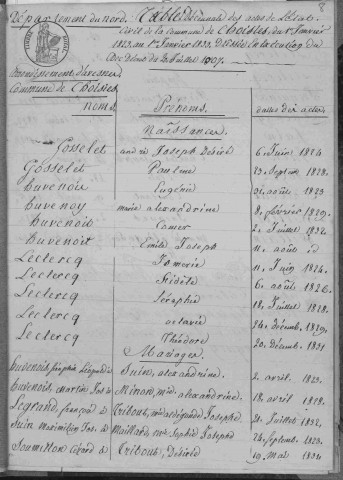 8
Département du nord. Table décennale des actes de l'état
civil de la commune de Choisies, du 1er Janvier
1823 au 1er Janvier 1833. Dressée en exécution du
décret du 20 Juillet 1807.
Arrondissement d'avesnes
Commune de Choisies
noms Prénoms. dattes des actes
Naissances
Gosselet andré Joseph Désiré 6. Juin 1824
Gosselet Pauline 23. Septemb 1828.
huvenois Eugénie 31. août 1823
huvenoy marie alexandrine 8. février 1829.
huvenois Comer 2. Juillet 1832.
huvenoit Emile Joseph 11. août id
Leclercq Ismerie 11. Juin 1824.
Leclercq fidéle 6. août 1826.
Leclercq Séraphie 18. Juillet 1828.
Leclercq octavie 24. décemb. 1829.
Leclercq Théodore 20. décemb. 1831
Mariages.
huvenois Léopold à Suin, alexandrine. 2. avril. 1823.
huvenois, martin Jos. à Minon, mie. alexandrine. 18. avril. 1828.
Legrand, françois à Tribout, Joseph 21. Juillet 1832.
Suin Maximilien Jos. à Maillard, Sophie Joseph 24. Septemb. 1823.
Soumillon à Tribout, Désirée 19. mai 1831.